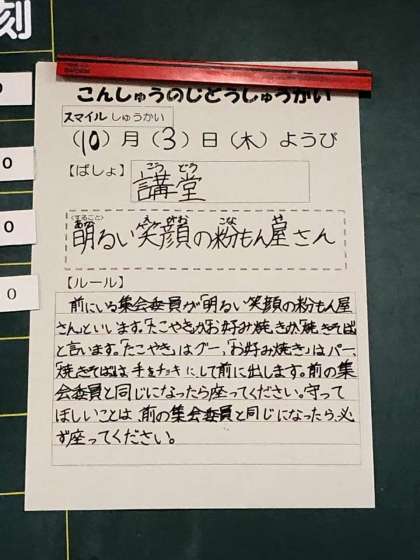 刻
0
0
0
0
こんしゅうのじどうしゅうかい
スマイル しゅうかい
(10)月(3)日(木)ようび
【ばしょ】 講堂
こう どう
<するこ>
あか え がお こな や
明るい笑顔の粉もん屋さん
【ルール】
前にいる集会委員が「明るい笑顔の粉もん屋
さん」といいます。「たこやき」か「お好み焼き」か「焼きそば」
と言います。「たこやき」はグー、「お好み焼き」はパー、
「焼きそば」は手をチョキにして前に出します。前の集
会委員と同じになったら座ってください。守って
ほしいことは、前の集会委員と同じになったら、必
ず座ってください。